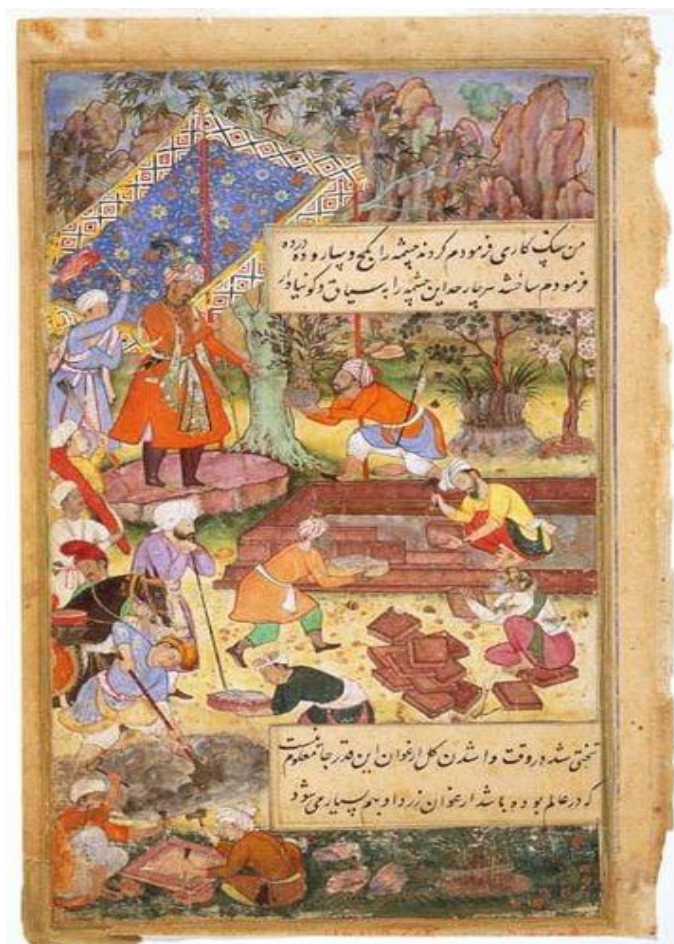 من سنک کاری فرمودم کردند چشمه را بکج و سارو ده درده
فرمودم ساختند چار حد این چشمه را به سیاق و کونیادار
تختی شد در وقت وا شدن کل ارغوان این قدر جا معلوم نیست
که در عالم بوده باشد ارغوان زرد او هم بسیار می شود